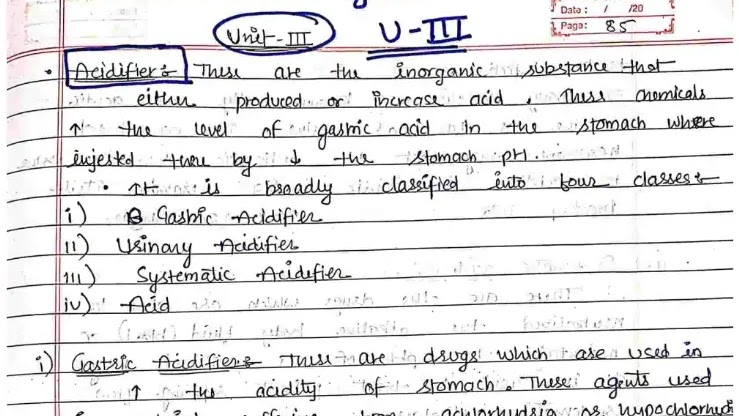 Date: / /20
Unit-III U-III
Page: 85
• Acidifier:- These are the inorganic substance that
either produced or increase acid. These chemicals
↑ the level of gastric acid in the stomach where
injested there by ↓ the stomach pH.
• It is broadly classified into four classes:-
i) Gastric Acidifier
ii) Urinary Acidifier
iii) Systematic Acidifier
iv) Acid
i) Gastric Acidifier:- These are drugs which are used in
↑ the acidity of stomach. These agents used
achlorhydria or hypochlorhyd